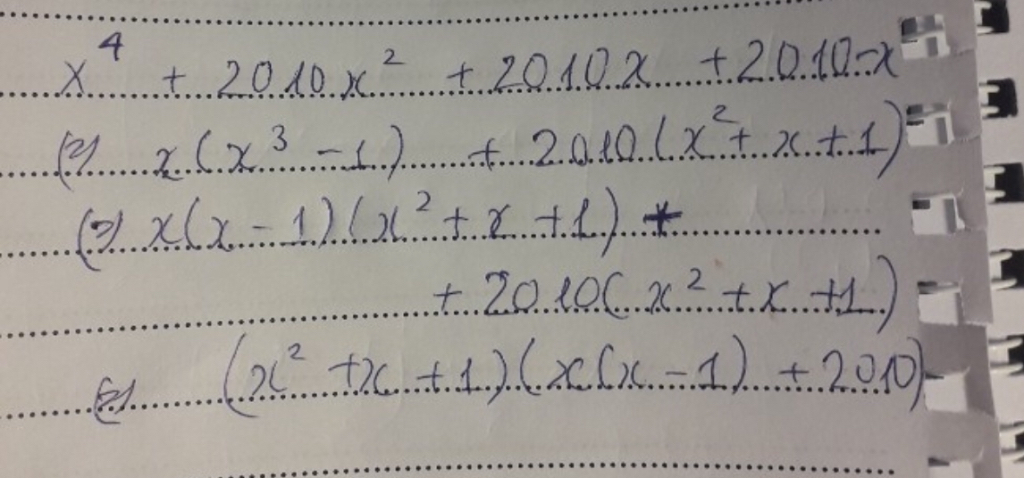 x⁴ + 2010x² + 2010x + 2010-x
(=) x(x³ - 1) + 2010(x² + x + 1)
(=) x(x - 1)(x² + x + 1) +
+ 2010(x² + x + 1)
(=) (x² + x + 1)(x(x - 1) + 2010)